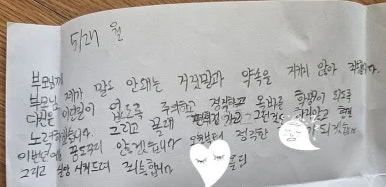 5/27 월
부모님께
부모님 제가 말도 안돼는 거짓말과 약속을 지키지 않아 죄송합니다.
다신은 이런일이 없도록 주의하고 올바른 학생이 되도록
노력하겠습니다. 그리고 몰래 가고 그런것도
이번년에는 안하겠습니다 오늘부터 정직한 가 되겠습니다
그리고 실망 시켜드려 죄송합니다 올림